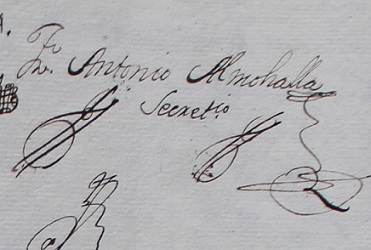 Fr. Antonio Almohalla
Secretio